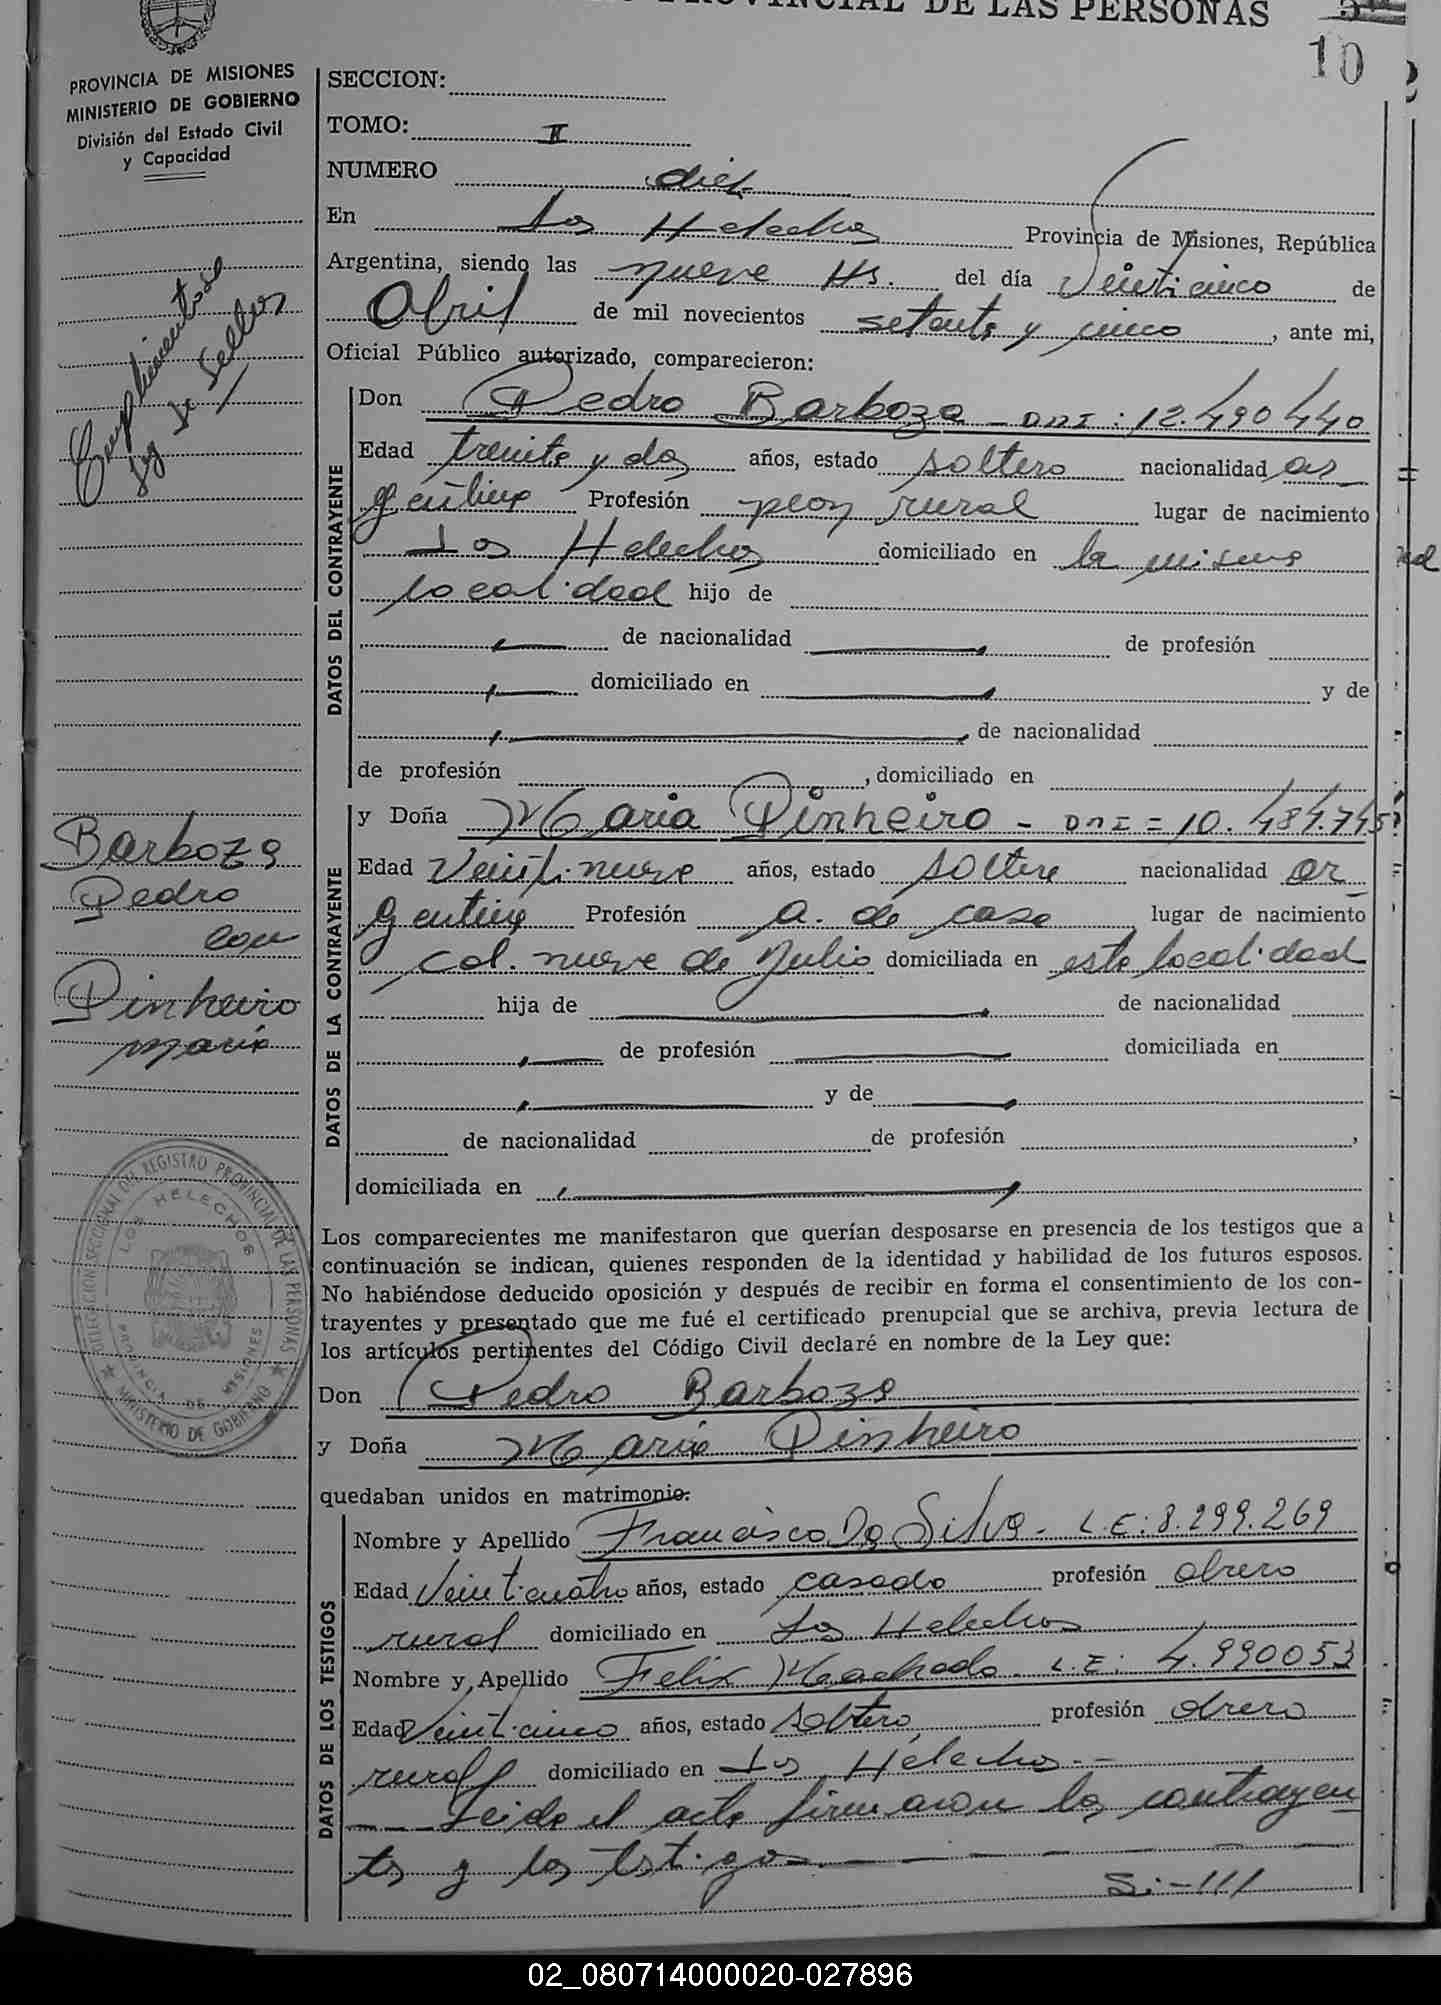 PROVINCIAL DE LAS PERSONAS
10
PROVINCIA DE MISIONES
MINISTERIO DE GOBIERNO
División del Estado Civil
y Capacidad
SECCION:
TOMO: II
NUMERO diez
En Los Helechos Provincia de Misiones, República
Argentina, siendo las nueve Hs. del día Veinticinco de
Abril de mil novecientos setenta y cinco, ante mi,
Oficial Público autorizado, comparecieron:
DATOS DEL CONTRAYENTE
Don Pedro Barboza - DNI: 12.490440
Edad treinta y dos años, estado soltero nacionalidad ar
gentina Profesión peon rural lugar de nacimiento
Los Helechos domiciliado en la misma
localidad hijo de
de nacionalidad de profesión
domiciliado en y de
de nacionalidad
de profesión , domiciliado en
DATOS DE LA CONTRAYENTE
y Doña Maria Pinheiro - DNI = 10.484.745
Edad Veintinueve años, estado soltera nacionalidad ar
gentina Profesión a. de casa lugar de nacimiento
Col. nueve de Julio domiciliada en esta localidad
hija de de nacionalidad
de profesión domiciliada en
y de
de nacionalidad de profesión ,
domiciliada en
Los comparecientes me manifestaron que querían desposarse en presencia de los testigos que a
continuación se indican, quienes responden de la identidad y habilidad de los futuros esposos.
No habiéndose deducido oposición y después de recibir en forma el consentimiento de los con-
trayentes y presentado que me fué el certificado prenupcial que se archiva, previa lectura de
los artículos pertinentes del Código Civil declaré en nombre de la Ley que:
Don Pedro Barboza
y Doña Maria Pinheiro
quedaban unidos en matrimonio.
DATOS DE LOS TESTIGOS
Nombre y Apellido Francisco Da Silva - L.E: 8.299.269
Edad Veinticuatro años, estado casado profesión obrero
rural domiciliado en Los Helechos
Nombre y Apellido Felix Machado - L.E: 4.990053
Edad Veinticinco años, estado soltero profesión obrero
rural domiciliado en Los Helechos.-
Leida el acta firmaron los contrayen
tes y los testigos
S:-///
de Sellos
Barboza
Pedro
con
Pinheiro
Maria
DELEGACION SECCIONAL DEL REGISTRO PROVINCIAL DE LAS PERSONAS
MINISTERIO DE GOBIERNO
LOS HELECHOS
PROVINCIA DE MISIONES
02_080714000020-027896